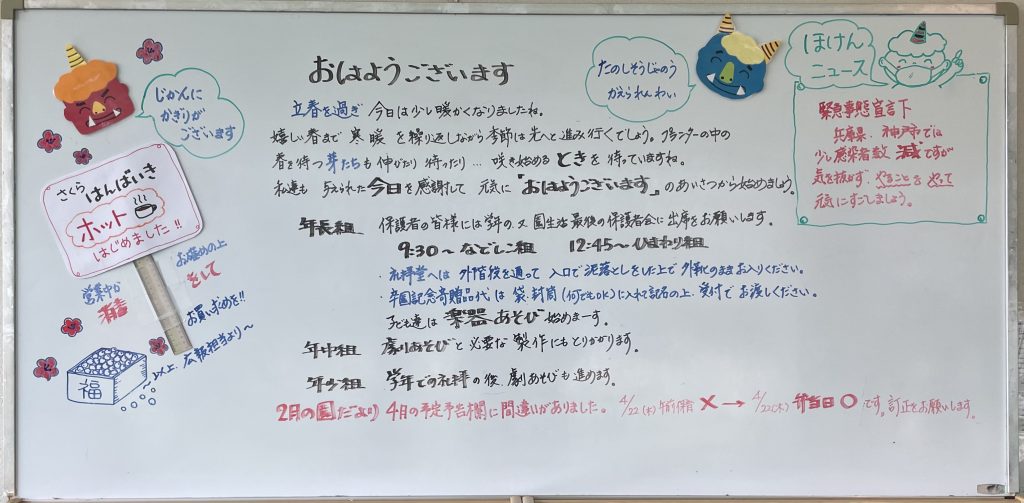 おはようございます
立春を過ぎ 今日は少し暖かくなりましたね。
嬉しい春まで 寒暖を繰り返しながら季節は先へと進み行くでしょう。プランターの中の
春を待つ芽たちも 伸びたり 待ったり… 咲き始めるときを 待っていますね。
私達も 与えられた今日を感謝して 元気に"おはようございます"のあいさつから始めましょう。
年長組 保護者の皆様には学年の、又 園生活最後の保護者会に出席をお願いします。
9:30～なでしこ組 12:45～ひまわり組
・礼拝堂へは 外階段を通って 入口で泥落としをした上で外靴のままお入りください。
・卒園記念寄贈品代は 袋、封筒(何でもOK)に入れて記名の上、受付でお渡しください。
子ども達は 楽器あそび 始めまーす。
年中組 劇あそびと必要な製作にもとりかかります。
年少組 学年での礼拝の後、劇あそびも進めます。
2月の園だより 4月の予定弁当欄に間違いがありました。 4/22(木)午前保育 ×→ 4/22(木)弁当日○です。訂正をお願いします。
じかんに
かぎりが
ございます
さくら はんばいき
ホット
はじめました!!
お確めの上
をして
営業中か
消毒
お買い求めを!!
～以上、広報担当より～
福
たのしそうじゃのう
かえられんわい
ほけん
ニュース
緊急事態宣言下
兵庫県、神戸市では
少し感染者数 減ですが
気を抜かず、やることを やって
元気にすごしましょう。